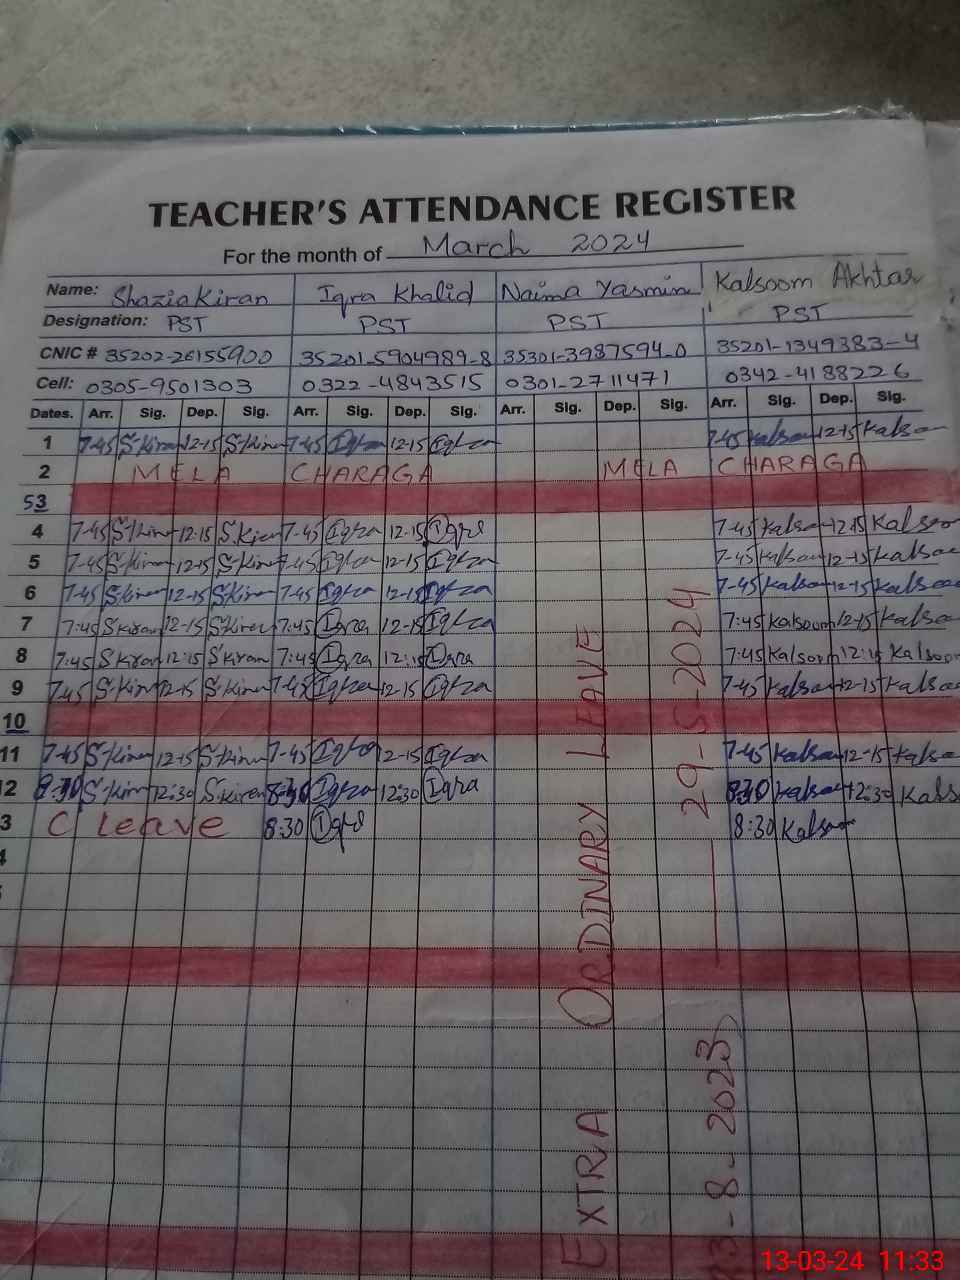 TEACHER'S ATTENDANCE REGISTER
For the month of March 2024
Name: Shazia Kiran Iqra Khalid Naima Yasmin Kalsoom Akhtar
Designation: PST PST PST PST
CNIC # 35202-26155900 35201-5904989-8 35301-3987594-0 35201-1349383-4
Cell: 0305-9501303 0322-4843515 0301-2711471 0342-4188226
Dates. Arr. Sig. Dep. Sig. Arr. Sig. Dep. Sig. Arr. Sig. Dep. Sig. Arr. Sig. Dep. Sig.
1 7-45 S-Kiran 12-15 S-Kiran 7-45 Iqra 12-15 Iqra 7-45 Kalsoom 12-15 Kalsoom
2 MELA CHARAGA MELA CHARAGA
S3
4 7-45 S-Kiran 12-15 S.Kiran 7-45 Iqra 12-15 Iqra 7-45 Kalsoom 12-15 Kalsoom
5 7-45 S-Kiran 12-15 S-Kiran 7-45 Iqra 12-15 Iqra 7-45 Kalsoom 12-15 Kalsoom
6 7-45 S-Kiran 12-15 S-Kiran 7-45 Iqra 12-15 Iqra 7-45 Kalsoom 12-15 Kalsoom
7 7:45 S kiran 12-15 S-Kiran 7:45 Iqra 12-15 Iqra 7:45 Kalsoom 12-15 Kalsoom
8 7:45 S Kiran 12:15 S Kiran 7:45 Iqra 12:15 Iqra 7:45 Kalsoom 12:15 Kalsoom
9 7-45 S-Kiran 12-15 S-Kiran 7-45 Iqra 12-15 Iqra 7-45 Kalsoom 12-15 Kalsoom
10
11 7-45 S-Kiran 12-15 S-Kiran 7-45 Iqra 12-15 Iqra 7-45 Kalsoom 12-15 Kalsoom
2 8:30 S-Kiran 12:30 S Kiran 8:30 Iqra 12:30 Iqra 8:30 Kalsoom 12:30 Kals
3 C Leave 8:30 Iqra 8:30 Kalsoom
EXTRIA ORDINARY LEAVE
3-8-2023 — 29-5-2024
13-03-24 11:33